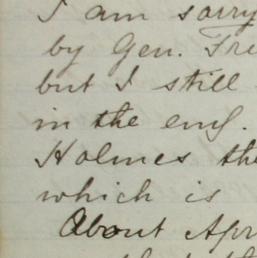 I am sorry
by Gen. Fre
but I still
in the end.
Holmes the
which is
About Apr